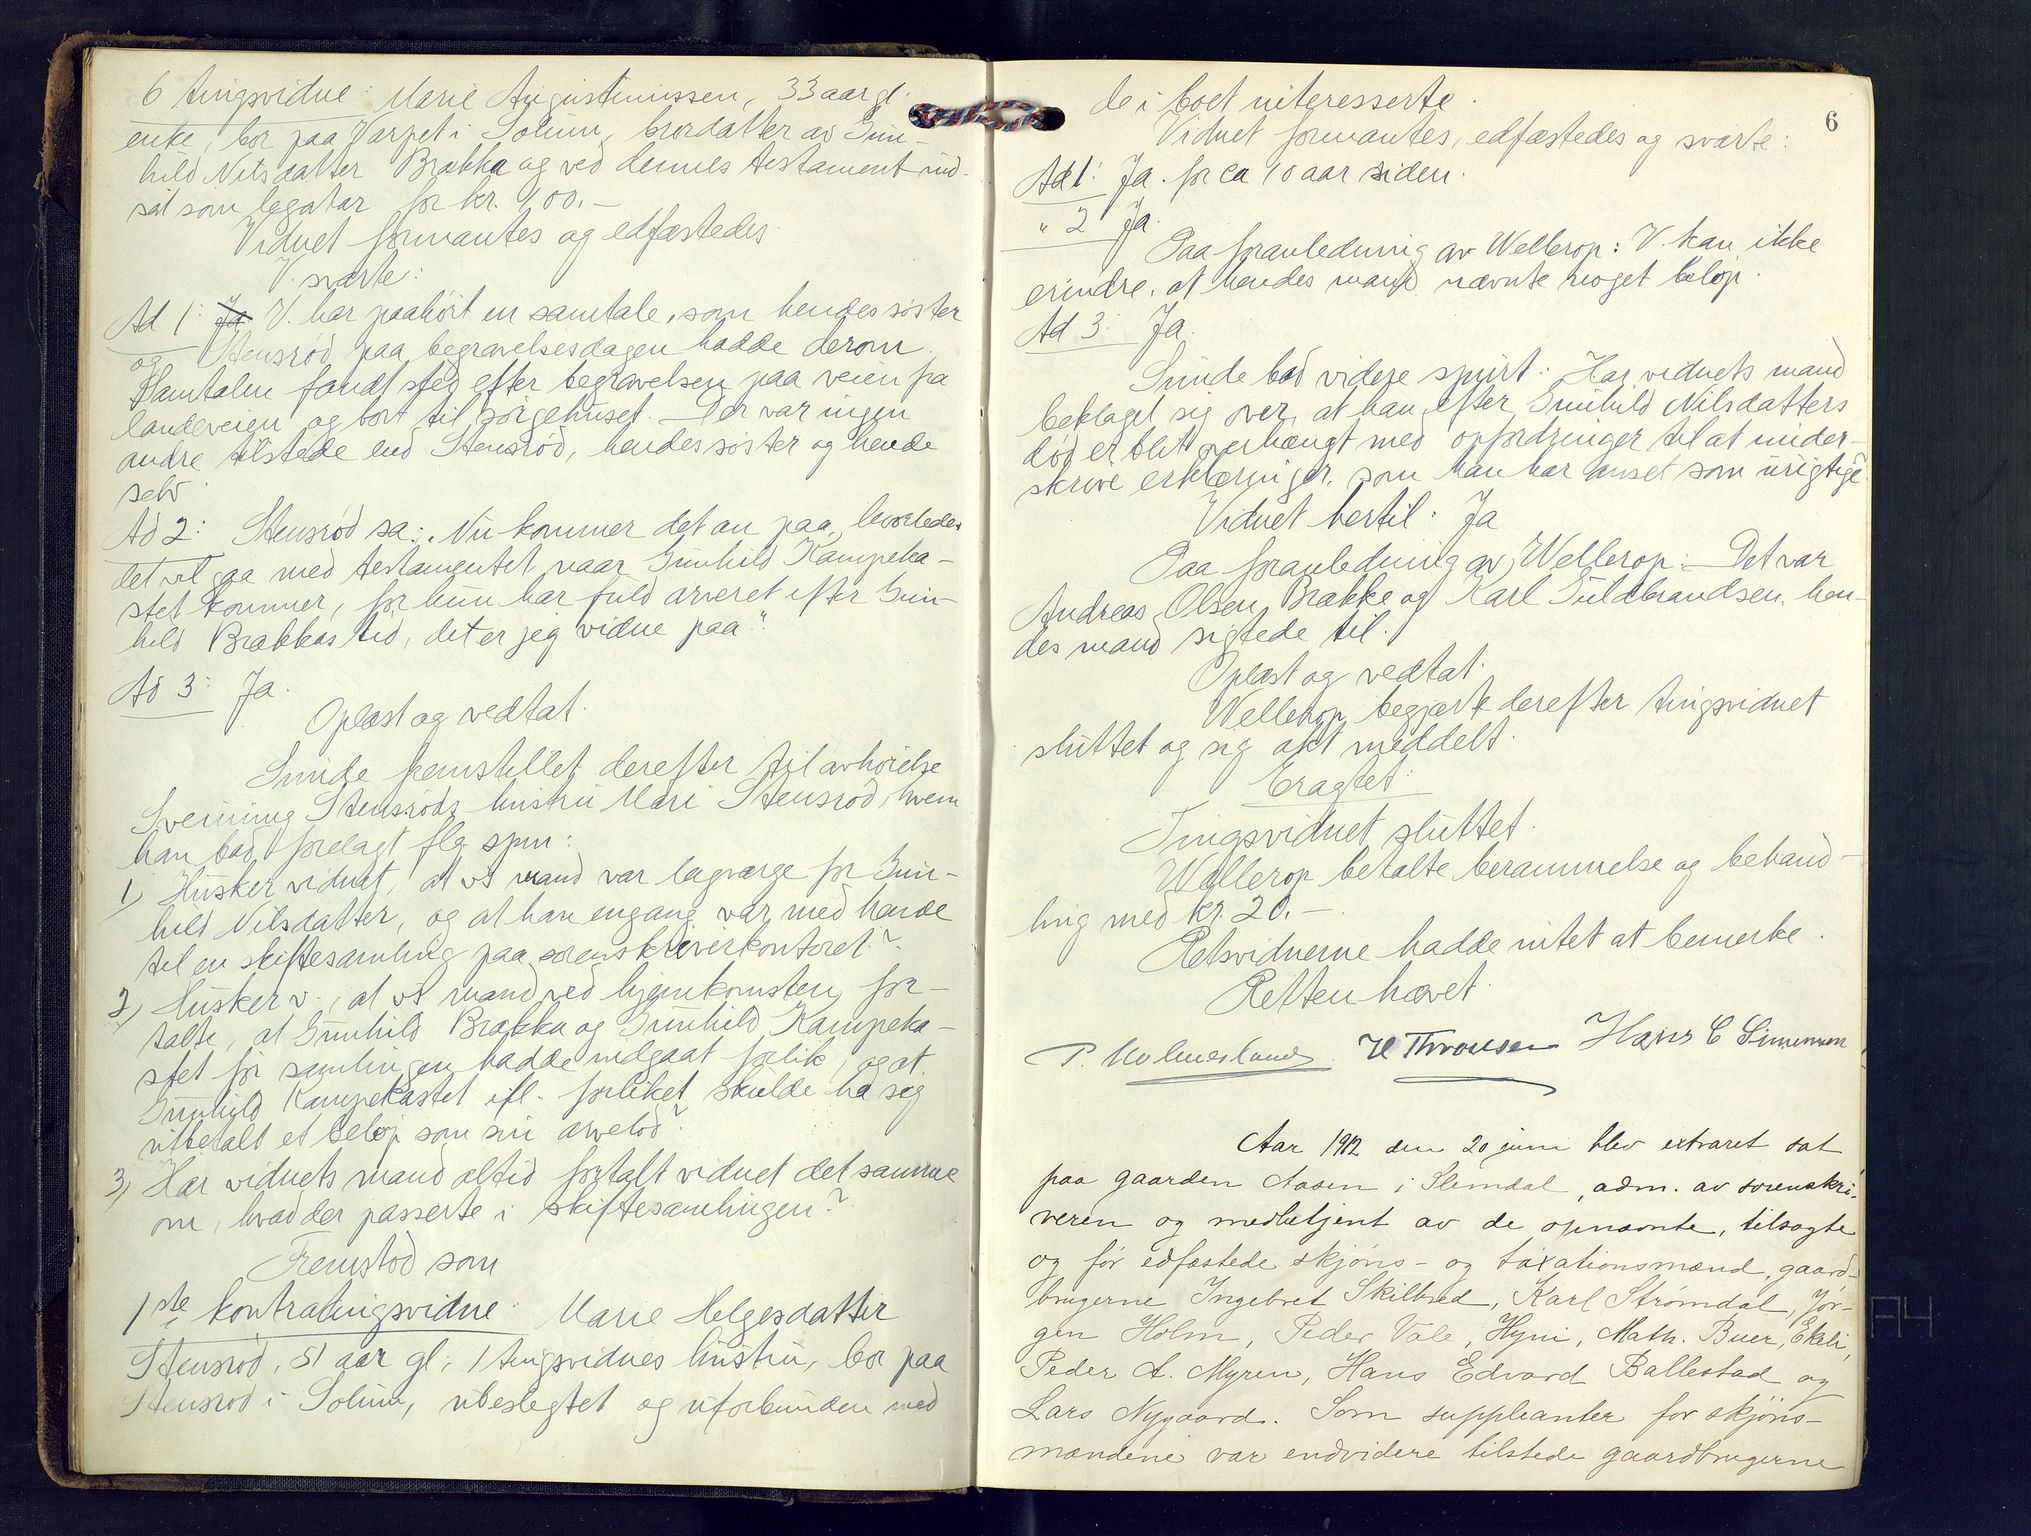 6 tingsvidne: Marie Augustinussen, 33 aar gl.
enke, bor paa Varpet i Solum, brordatter av Gun-
hild Nilsdatter Brækka og ved dennes testament ind-
sat som legatar for kr. 100.-
Vidnet formantes og edfæstedes.
V. svarte:
Ad 1: Ja V. har paahört en samtale, som hendes söster
og Stensröd paa begravelsesdagen hadde derom.
Samtalen fandt sted efter begravelsen paa veien fra
landeveien og bort til sörgehuset. Der var ingen
andre tilstede end Stensröd, hendes söster og hende
selv.
Ad 2: Stensröd sa: "Nu kommer det an paa, hvorledes
det vil gaa med testamentet naar Gunhild Kampeka-
stet kommer, for hun har fuld arveret efter Gun-
hild Brækkas tid, det er jeg vidne paa".
Ad 3: Ja.
Oplæst og vedtat.
Sunde fremstillet derefter til avhörelse
Sveinung Stensröds hustru Mari Stensröd, hvem
han bad forelagt flg. spm:
1) Husker vidnet, at vs mand var lagværge for Gun-
hild Nilsdatter, og at han engang var med hende
til en skiftesamling paa sorenskriverkontoret?
2) Husker v., at vs mand ved hjemkomsten for-
talte, at Gunhild Brækka og Gunhild Kampeka-
stet för samlingen hadde indgaat forlik, og at
Gunhild Kampekastet ifl. forliket skulde ha seg
utbetalt et belöp som sin arvelod?
3) Har vidnets mand altid fortalt vidnet det samme
om, hvad der passerte i skiftesamlingen?
Fremstod som
1ste kontratingsvidne: Marie Helgesdatter
Stensröd, 51 aar gl, 1 tingsvidnes hustru, bor paa
Stensröd i Solum, ubeslegtet og uforbunden med
6
de i boet interesserte.
Vidnet formantes, edfæstedes og svarte:
Ad 1: Ja. for ca 10 aar siden.
" 2 Ja.
Paa foranledning av Wellerop: V. kan ikke
erindre, at hendes mand nævnte noget belöp.
Ad 3: Ja.
Sunde bad videre spurt: Har vidnets mand
beklaget sig over, at han efter Gunhild Nilsdatters
död er blit overhængt med opfordringer til at under-
skrive erklæringer, som han har anset som urigtige
Vidnet hertil: Ja
Paa foranledning av Wellerop: Det var
Andreas Olsen Brække og Karl Guldbrandsen, hen-
des mand sigtede til.
Oplæst og vedtat.
Wellerop begjærte derefter tingsvidnet
sluttet og sig akt meddelt.
Eragtet:
Tingsvidnet sluttet.
Wellerop betalte berammelse og behand-
ling med kr. 20.-
Retsvidnerne hadde intet at bemerke.
Retten hævet.
P. Holmesland. H Thronsen Hans C Simonsen
Aar 1912 den 20 juni blev extraret sat
paa gaarden Aasen i Slemdal, adm. av sorenskri-
veren og medbetjent av de opnævnte, tilsagte
og før edfæstede skjøns- og taxationsmænd, gaard-
brugerne Ingebret Skilbred, Karl Strømdal, Jør-
gen Holm, Peder Vale, Hyni, Math. Buer, Ekeli,
Peder A. Myren, Hans Edvard Ballestad og
Lars Nygaard. Som suppleanter for skjøns-
mændene var endvidere tilstede gaardbrugerne